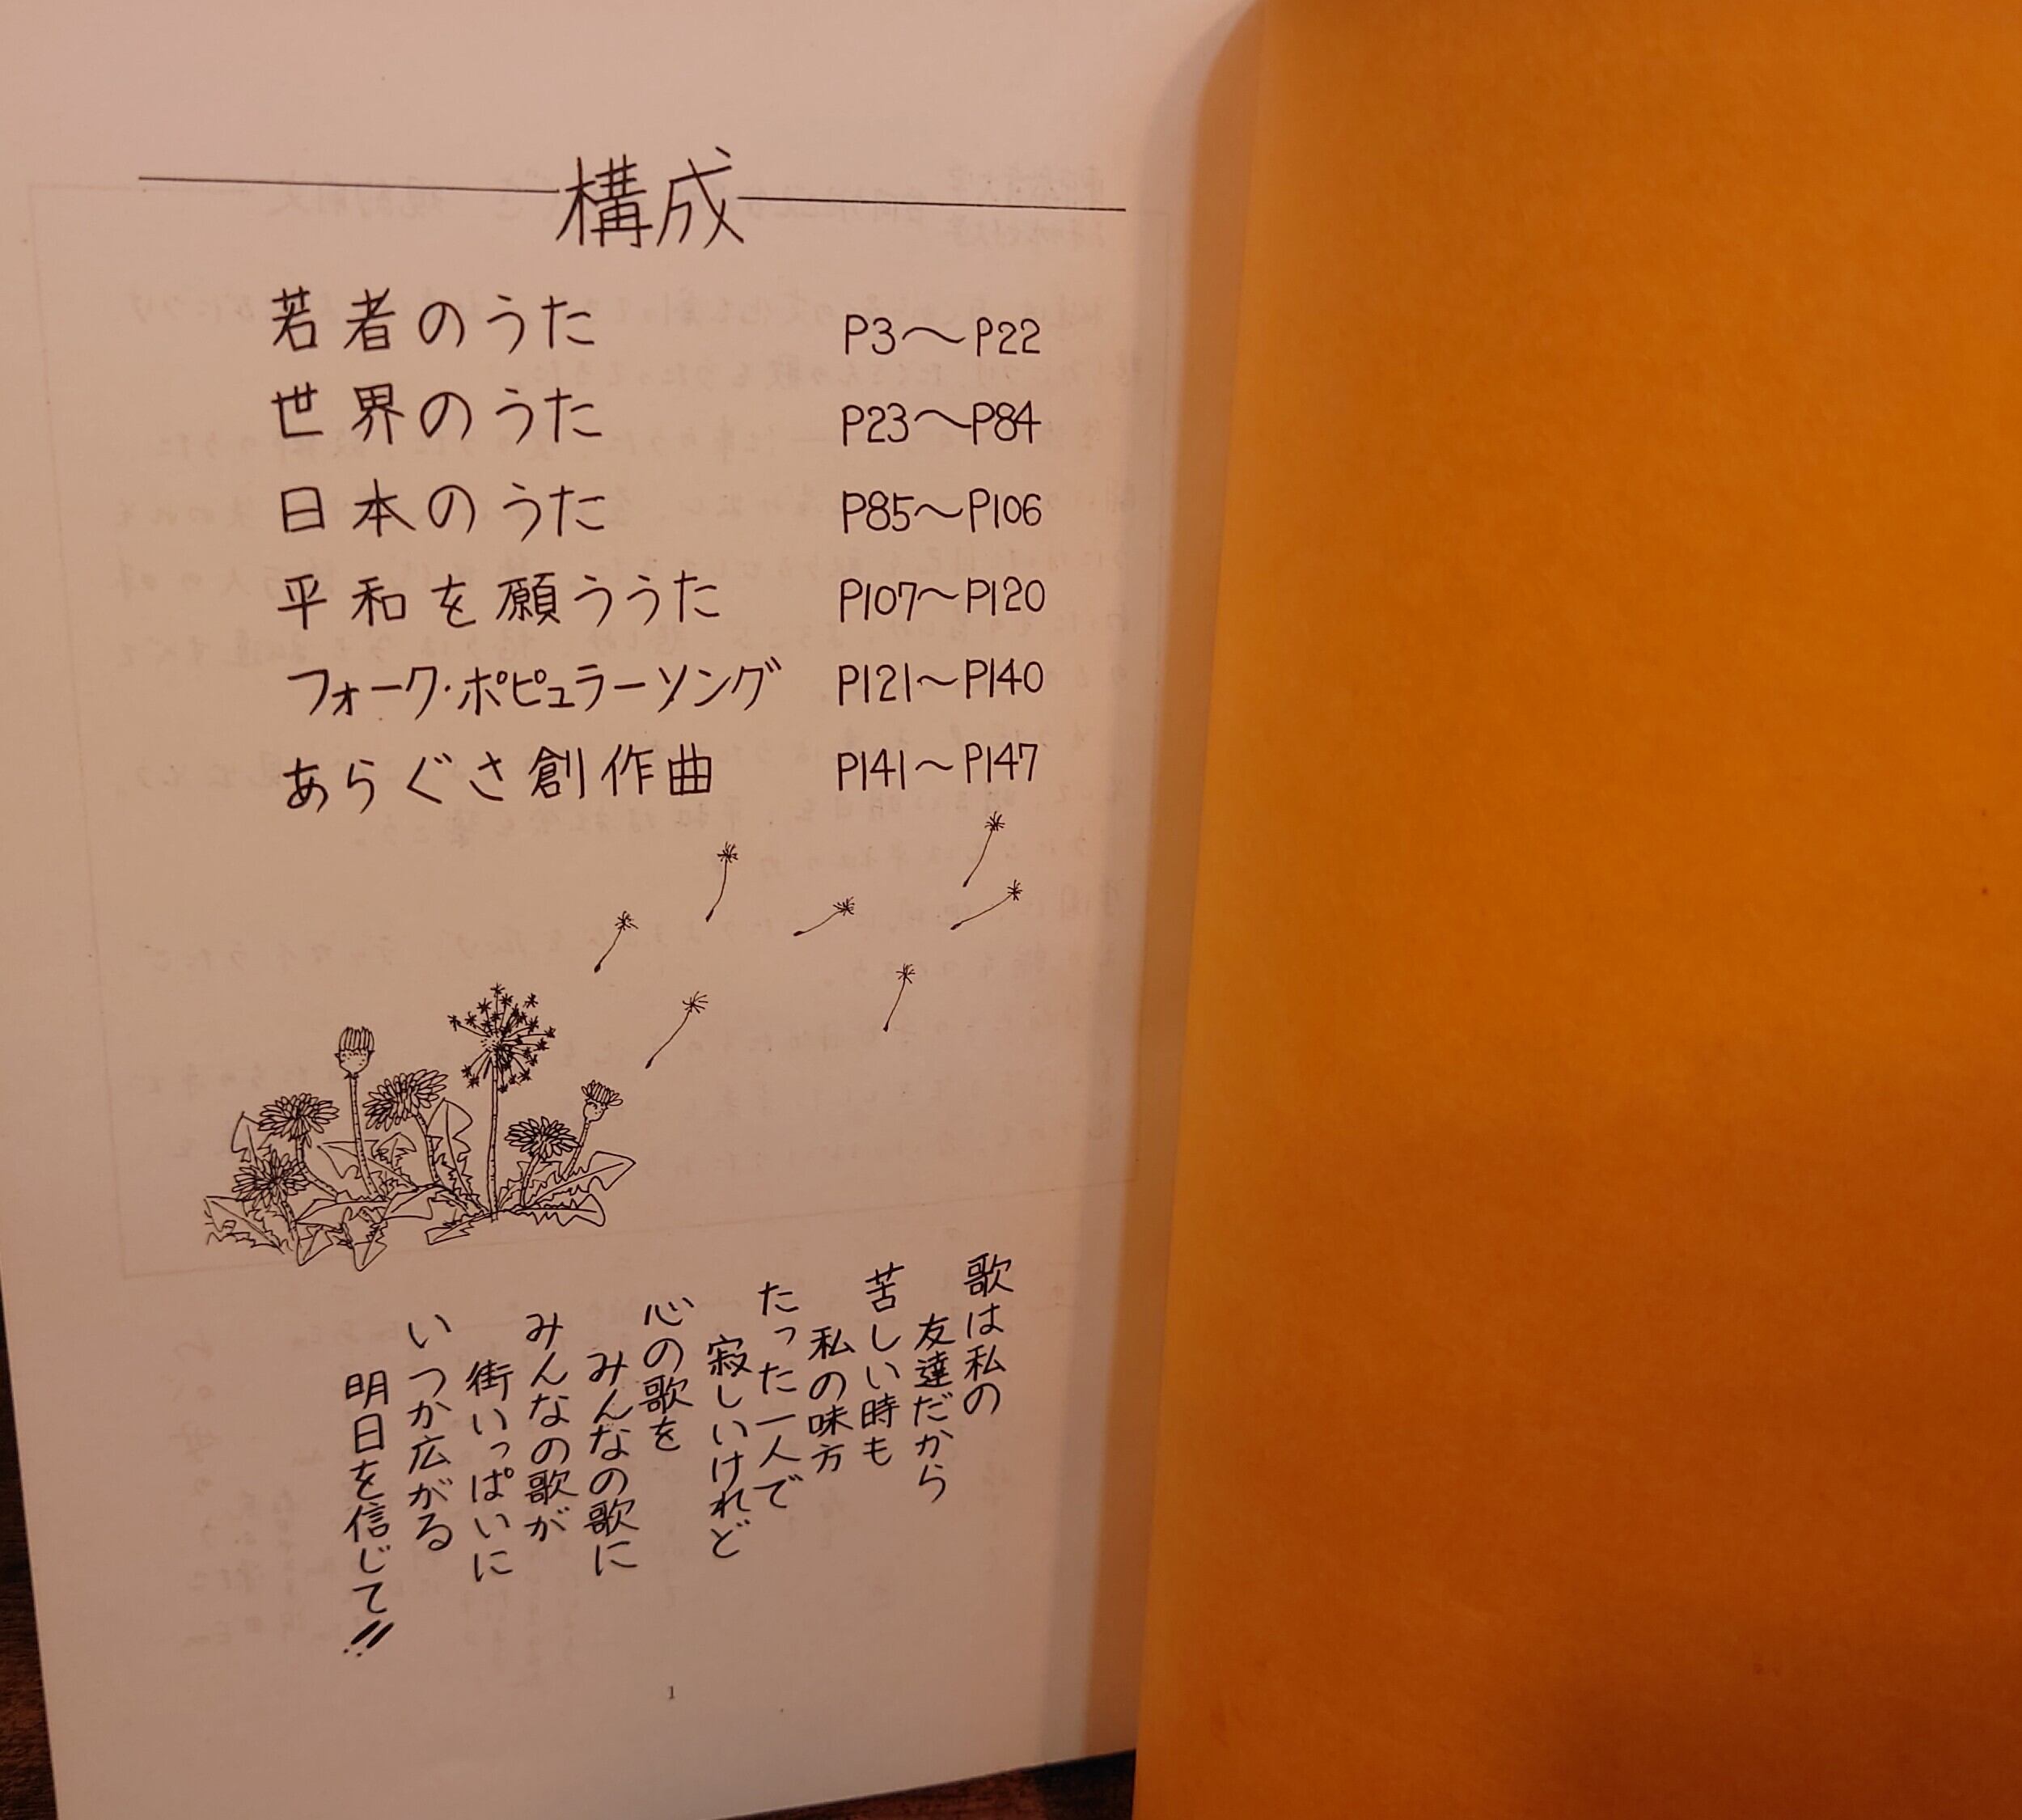 構成
若者のうた P3～P22
世界のうた P23～P84
日本のうた P85～P106
平和を願ううた P107～P120
フォーク・ポピュラーソング P121～P140
あらぐさ創作曲 P141～P147
歌は私の
友達だから
苦しい時も
私の味方
たった一人で
寂しいけれど
心の歌を
みんなの歌に
みんなの歌が
街いっぱいに
いつか広がる
明日を信じて!!
1